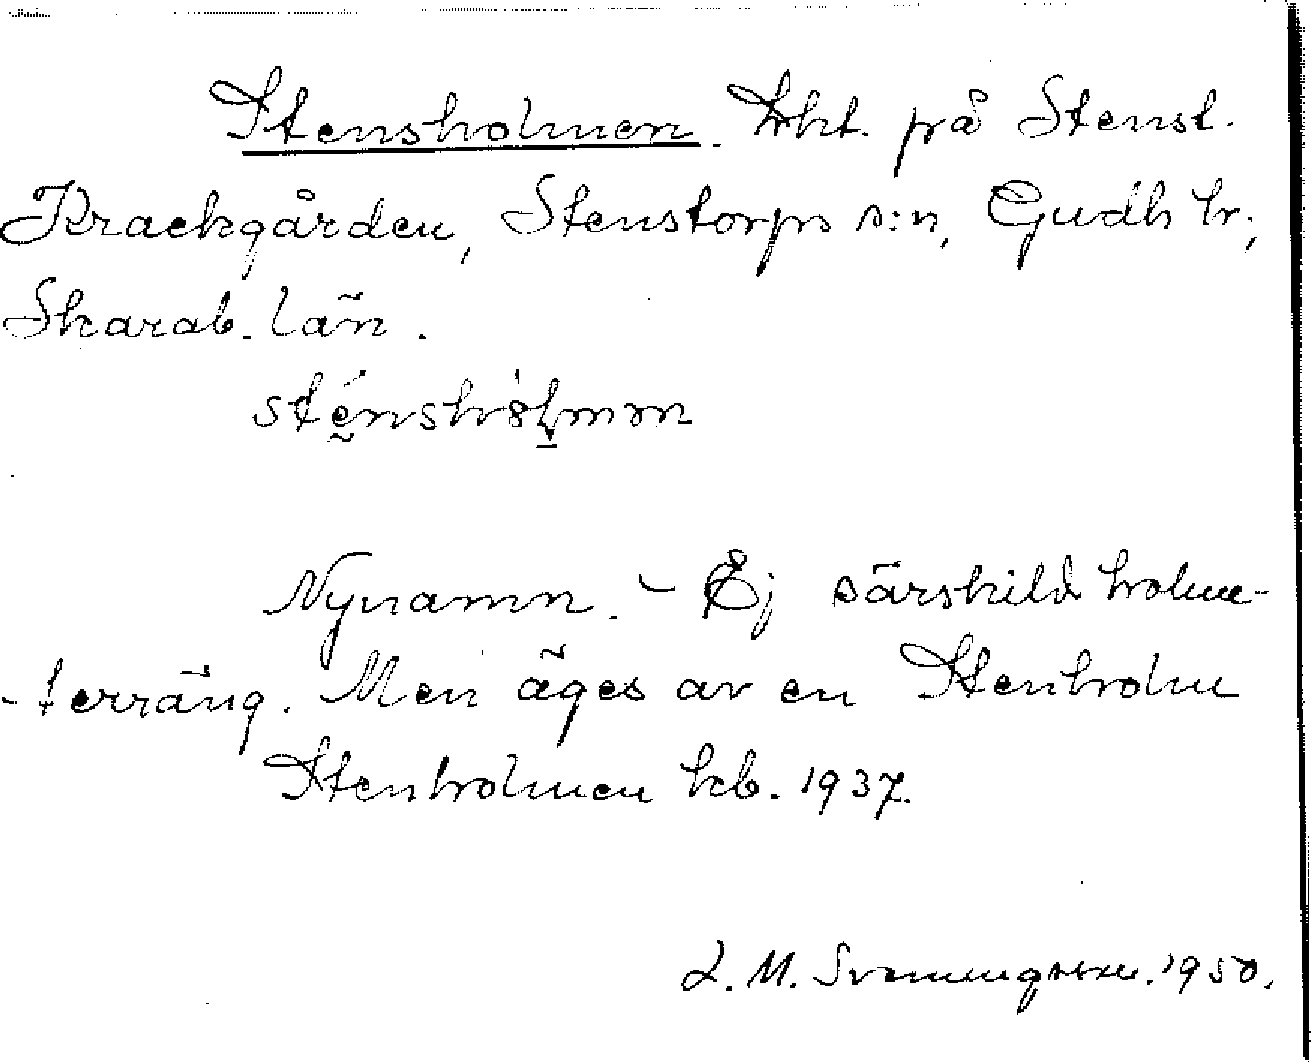 Stensholmen. Lht. på Stenst.
Krackgården, Stenstorps s:n, Gudh hr,
Skarab. län.
Nynamn. – Ej särskild holm-
-terräng. Men äges av en Stenholm
Stenholmen kb. 1937.
L. M. Svenungsson. 1950.